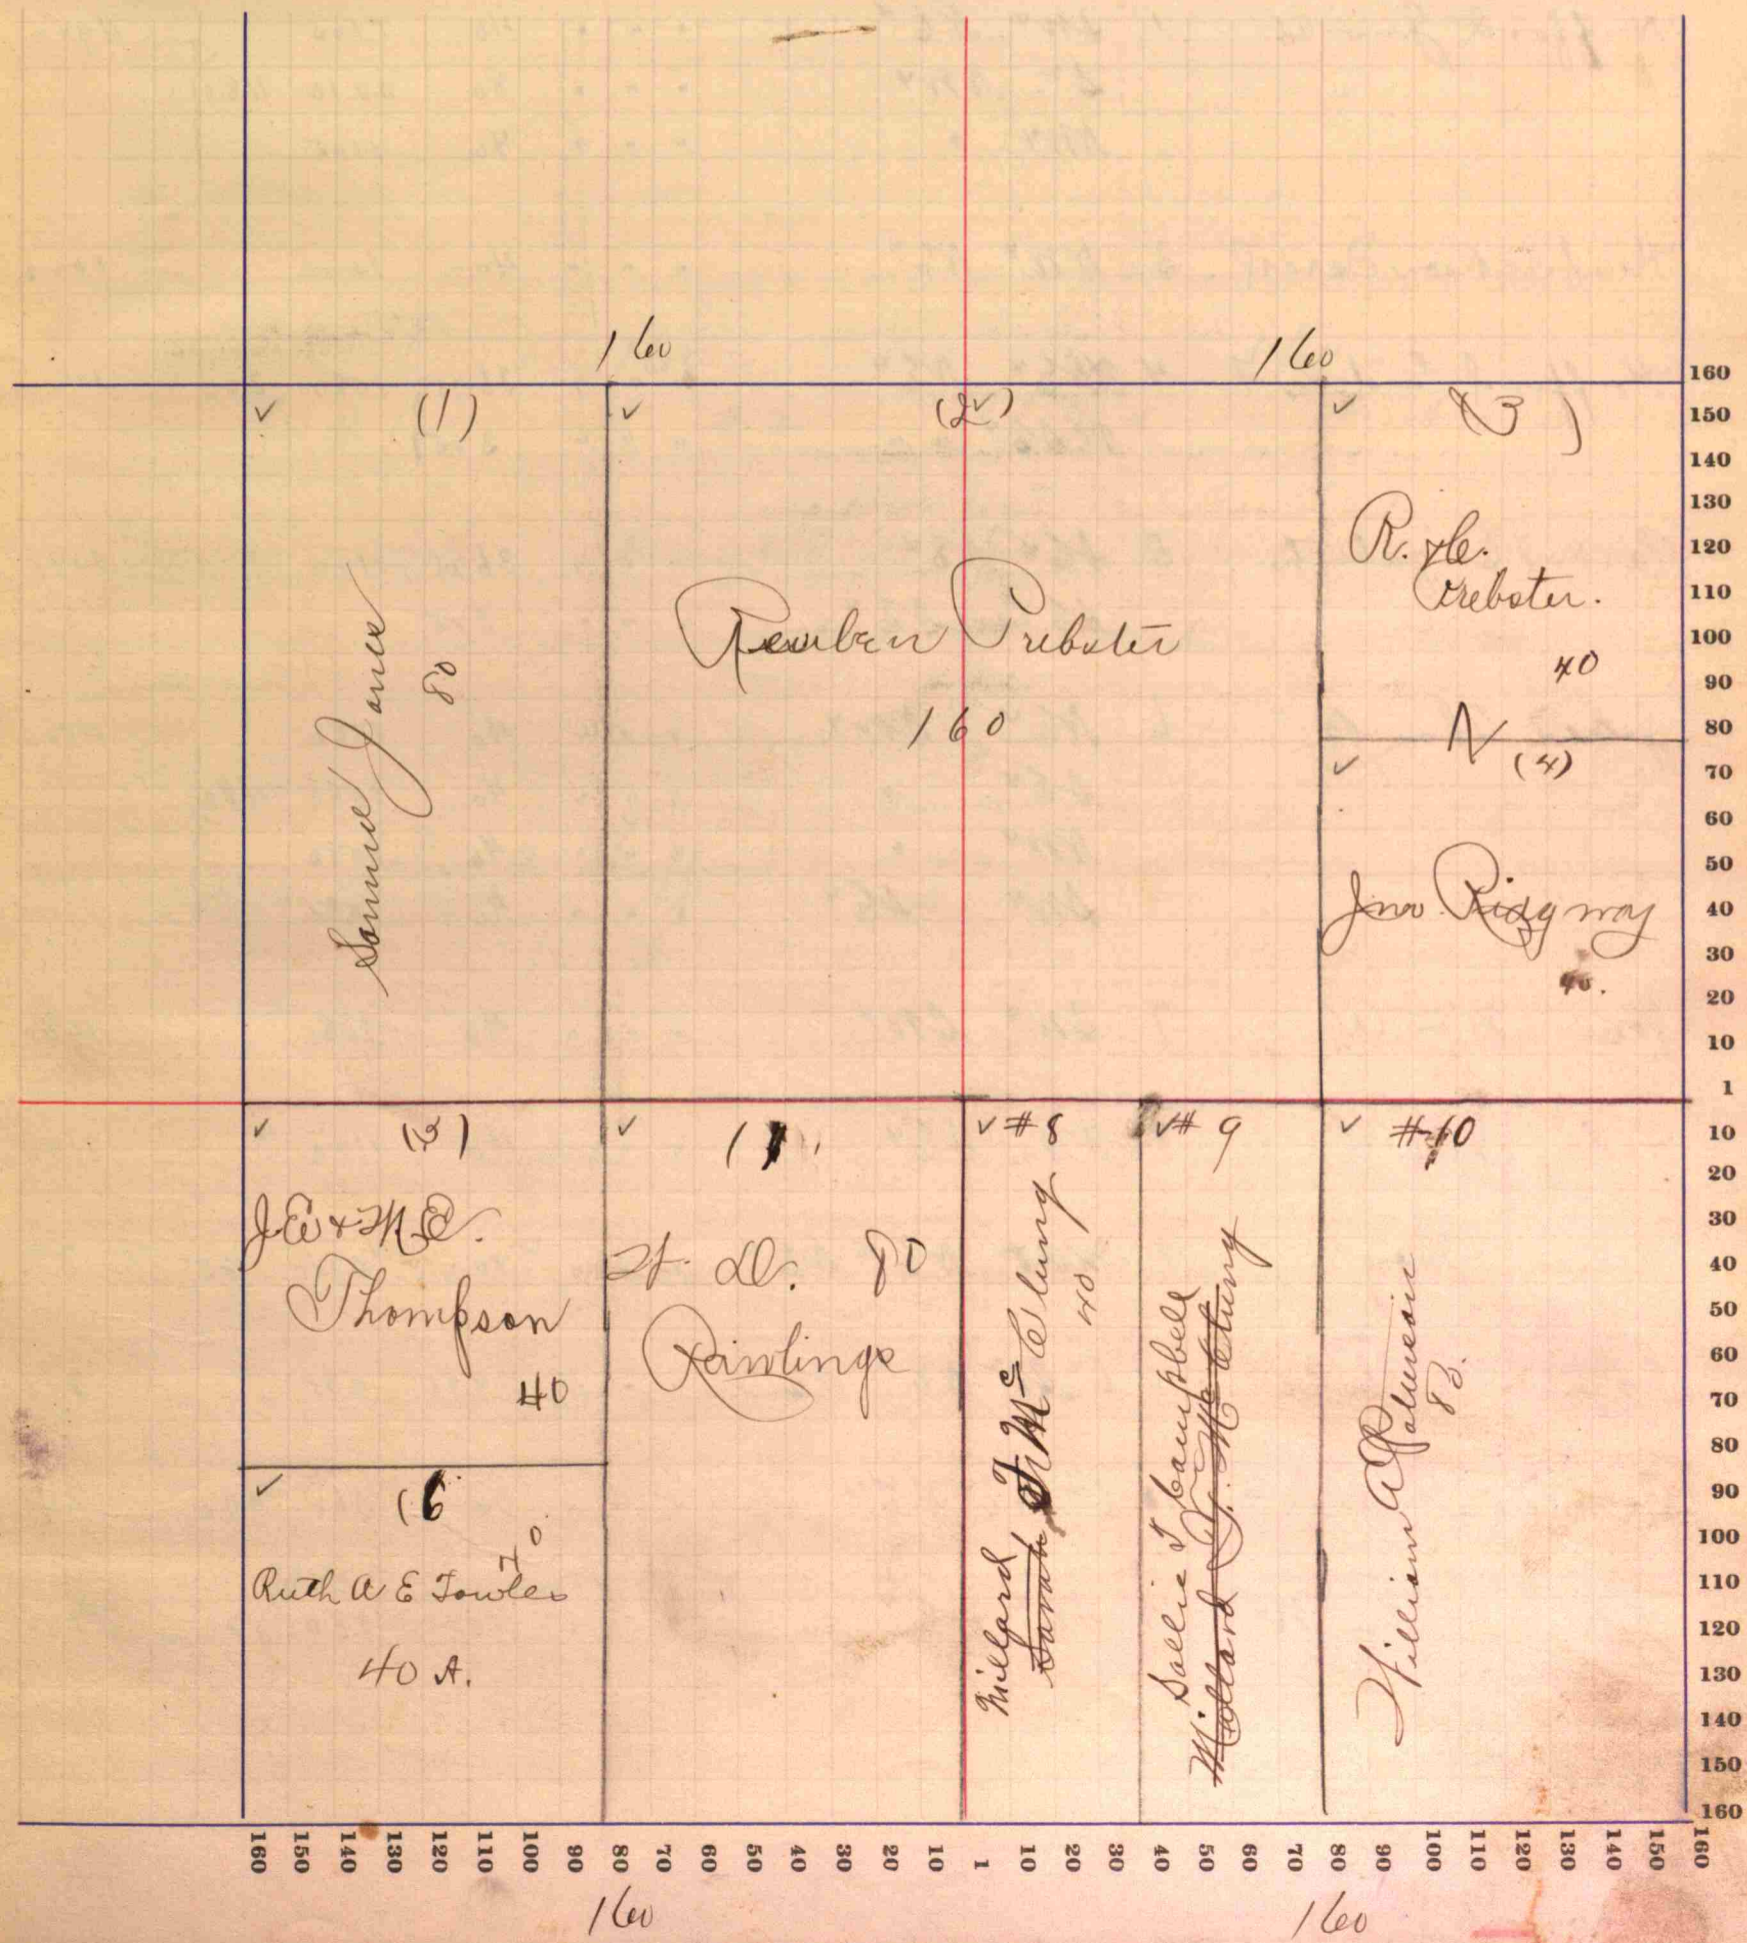 160
160
(1)
Samuel Jones
80
(2)
Reuben Prebster
160
(3)
R.
Prebster.
40
N
(4)
Jno. Ridgway
40.
(5)
J E & M E.
Thompson
40
(6
40
Ruth A E Fowler
40 A.
H. D. 80
Rawlings
#8
Millard
Sarah F Mc Clung
40
#9
Sallie F Campbell
Millard F. Mc Clung
#10
William A
80.
160
150
140
130
120
110
100
90
80
70
60
50
40
30
20
10
1
10
20
30
40
50
60
70
80
90
100
110
120
130
140
150
160
160 150 140 130 120 110 100 90 80 70 60 50 40 30 20 10 1 10 20 30 40 50 60 70 80 90 100 110 120 130 140 150 160
160
160